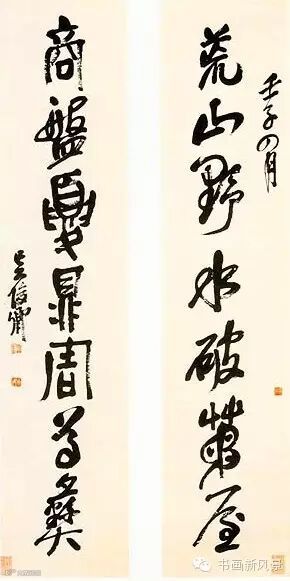 壬子四月
荒山野水破屋
商盤夏鼎周尊彝
吳俊卿
书画新风景